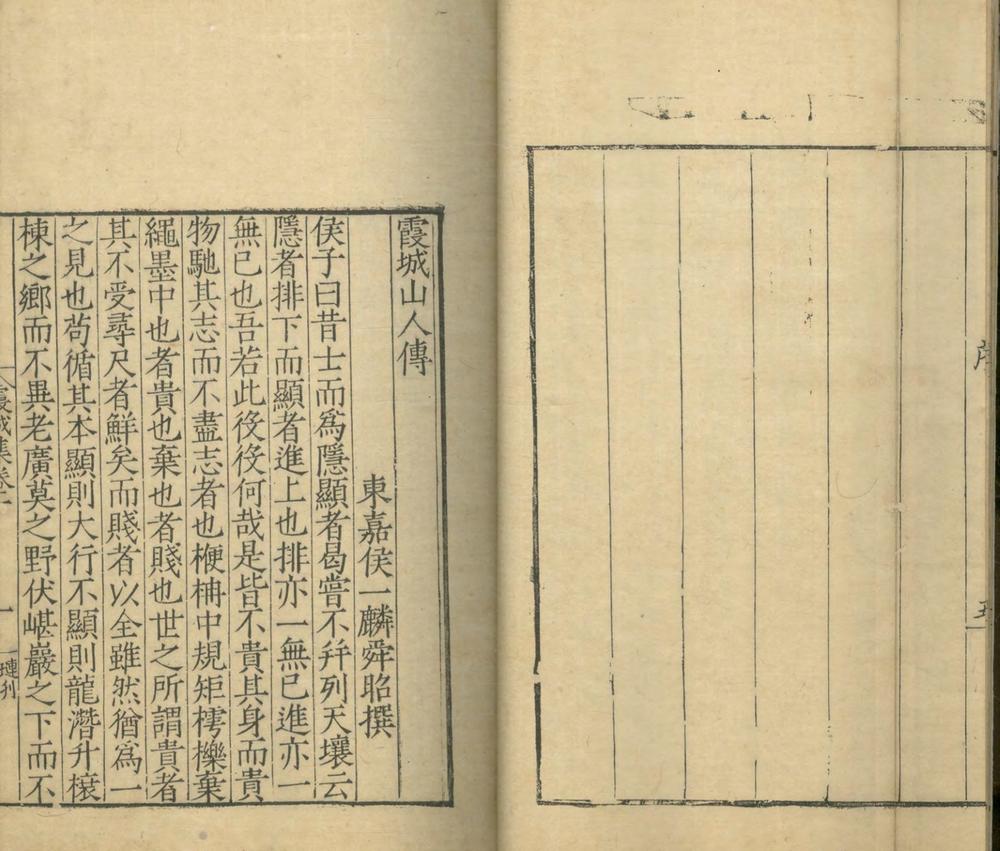 五
霞城山人傳
東嘉侯一麟舜昭撰
侯子曰昔士而爲隱顯者曷嘗不幷列天壤云
隱者排下而顯者進上也排亦一無已進亦一
無已也吾若此役役何哉是皆不貴其身而貴
物馳其志而不盡志者也楩柟中規矩樗櫟棄
繩墨中也者貴也棄也者賤也世之所謂貴者
其不受尋尺者鮮矣而賤者以全雖然猶爲一
之見也茍循其本顯則大行不顯則龍潛升榱
棟之鄉而不異老廣莫之野伏嵁巖之下而不
霞城集卷二
一
璉刋